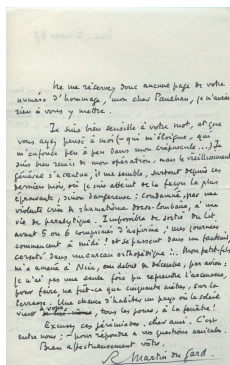 Nice. 2 mars 57
Ne me réservez donc aucune page de votre
numéro d'hommage, mon cher Paulhan, je n'aurai
rien à vous y mettre...
Je suis bien sensible à votre mot, et que
vous ayez pensé à moi (- qui m'éloigne, qui
m'enfonce peu à peu dans mon crépuscule...) Je
suis bien remis de mon opération, mais le vieillissement
général s'accentue, il me semble, surtout depuis ces
derniers mois, où je suis atteint de la façon la plus
éprouvante, sinon dangereuse : condamné, par une
violente crise de rhumatisme dorso-lombaire, à une
vie de paralytique. Impossible de sortir du lit
avant 5 ou 6 comprimés d'aspirine ; mes journées
commencent à midi ! et se passent dans un fauteuil,
corseté dans un carcan orthopédique... Mon petit-fils
m'a amené à Nice, au début de décembre, par avion ;
je n'ai pas une seule fois pu reprendre l'ascenseur,
pour faire ne fût-ce que cinquante mètres, sur la
terrasse. Une chance d'habiter un pays où le soleil
vient à vous, tous les jours, à la fenêtre !
Excusez ces jérémiades, cher ami. C'est
entre nous ; - pour répondre à vos questions amicales.
Bien affectueusement votre,
R. Martin du Gard.